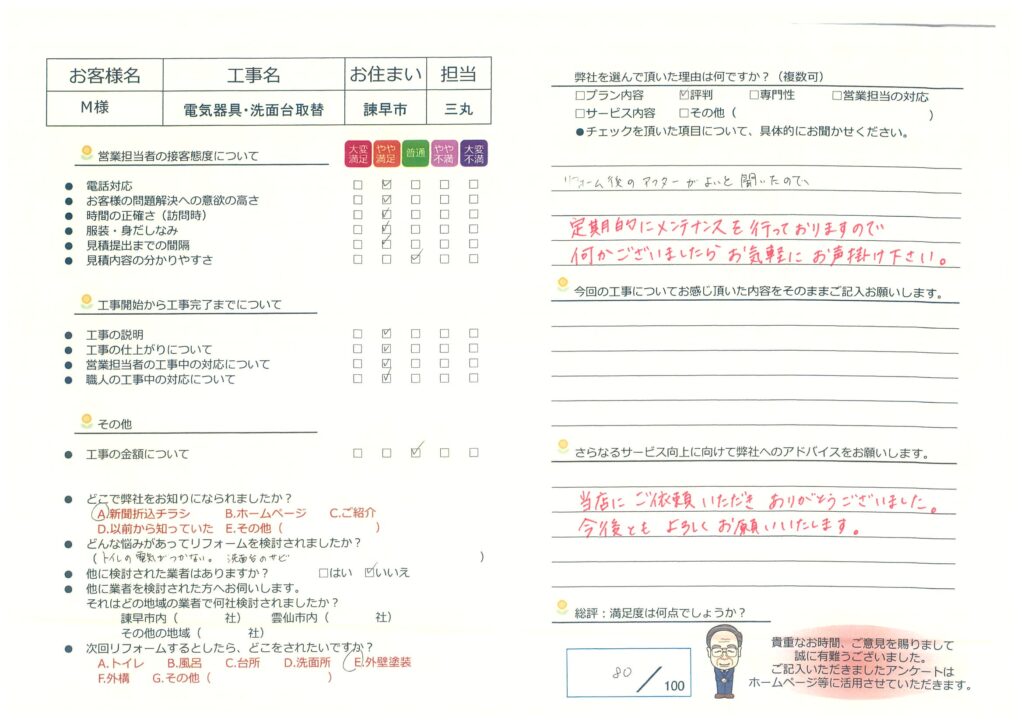 お客様名 工事名 お住まい 担当
M様 電気器具・洗面台取替 諫早市 三丸
営業担当者の接客態度について 大変満足 やや満足 普通 やや不満 大変不満
● 電話対応 □ ☑ □ □ □
● お客様の問題解決への意欲の高さ □ ☑ □ □ □
● 時間の正確さ（訪問時） □ ☑ □ □ □
● 服装・身だしなみ □ ☑ □ □ □
● 見積提出までの間隔 □ ☑ □ □ □
● 見積内容の分かりやすさ □ □ ☑ □ □
工事開始から工事完了までについて
● 工事の説明 □ ☑ □ □ □
● 工事の仕上がりについて □ ☑ □ □ □
● 営業担当者の工事中の対応について □ ☑ □ □ □
● 職人の工事中の対応について □ ☑ □ □ □
その他
● 工事の金額について □ □ ☑ □ □
● どこで弊社をお知りになられましたか？
A.新聞折込チラシ B.ホームページ C.ご紹介
D.以前から知っていた E.その他（ ）
● どんな悩みがあってリフォームを検討されましたか？
（トイレの電気がつかない。 洗面台のサビ ）
● 他に検討された業者はありますか？ □はい ☑いいえ
● 他に業者を検討された方へお伺いします。
それはどの地域の業者で何社検討されましたか？
諫早市内（ 社） 雲仙市内（ 社）
その他の地域（ 社）
● 次回リフォームするとしたら、どこをされたいですか？
A.トイレ B.風呂 C.台所 D.洗面所 E.外壁塗装
F.外構 G.その他（ ）
弊社を選んで頂いた理由は何ですか？（複数可）
□プラン内容 ☑評判 □専門性 □営業担当の対応
□サービス内容 □その他（ ）
●チェックを頂いた項目について、具体的にお聞かせください。
リフォーム後のアフターがよいと聞いたので、
定期的にメンテナンスを行っておりますので
何かございましたらお気軽にお声掛け下さい。
今回の工事についてお感じ頂いた内容をそのままご記入お願いします。
さらなるサービス向上に向けて弊社へのアドバイスをお願いします。
当店にご依頼いただきありがとうございました。
今後ともよろしくお願いいたします。
総評：満足度は何点でしょうか？
80/100
貴重なお時間、ご意見を賜りまして
誠に有難うございました。
ご記入いただきましたアンケートは
ホームページ等に活用させていただきます。